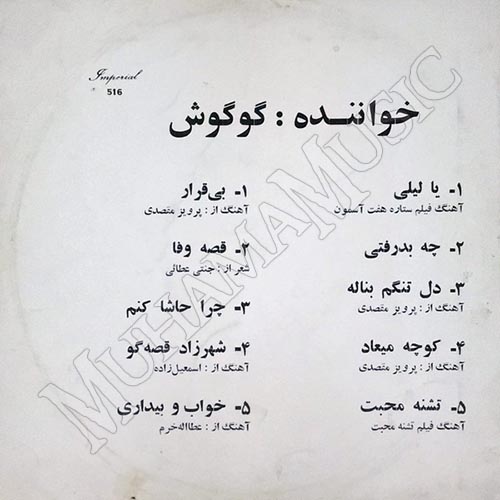 Imperial
516
خواننده : گوگوش
۱ـ یا لیلی
آهنگ فیلم ستاره هفت آسمون
۲ـ چه بدرفتی
۳ـ دل تنگم بناله
آهنگ از : پرویز مقصدی
۴ـ کوچه میعاد
آهنگ از : پرویز مقصدی
۵ـ تشنه محبت
آهنگ فیلم تشنه محبت
۱ـ بی‌قرار
آهنگ از : پرویز مقصدی
۲ـ قصه وفا
شعر از : جنتی عطائی
۳ـ چرا حاشا کنم
۴ـ شهرزاد قصه‌گو
آهنگ از : اسمعیل‌زاده
۵ـ خواب و بیداری
آهنگ از : عطااله خرم
MUHAMAMUSIC